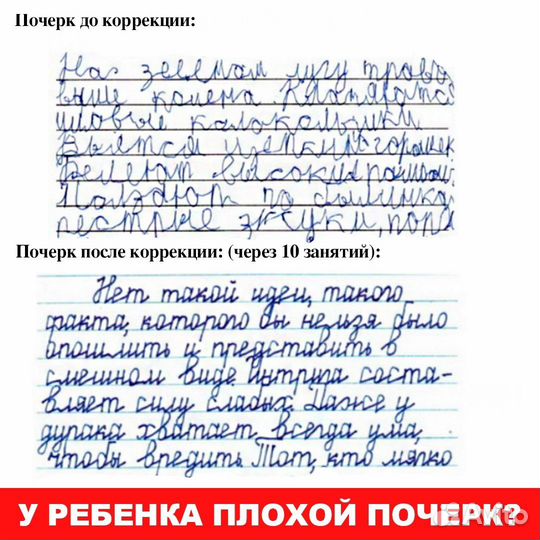 Почерк до коррекции:
На зеленом лугу трава
выше колена.
лиловые колокольчики
Вьётся цепкий горошек
Белеют высокие ромашки
Ползают по былинкам
пестрые жуки, пор
Почерк после коррекции: (через 10 занятий):
Нет такой идеи, такого
факта, которого бы нельзя было
опошлить и представить в
смешном виде. Интрига соста-
вляет силу слабых. Даже у
дурака хватает всегда ума,
чтобы вредить. Тот, кто мягко
У РЕБЕНКА ПЛОХОЙ ПОЧЕРК?
Avito